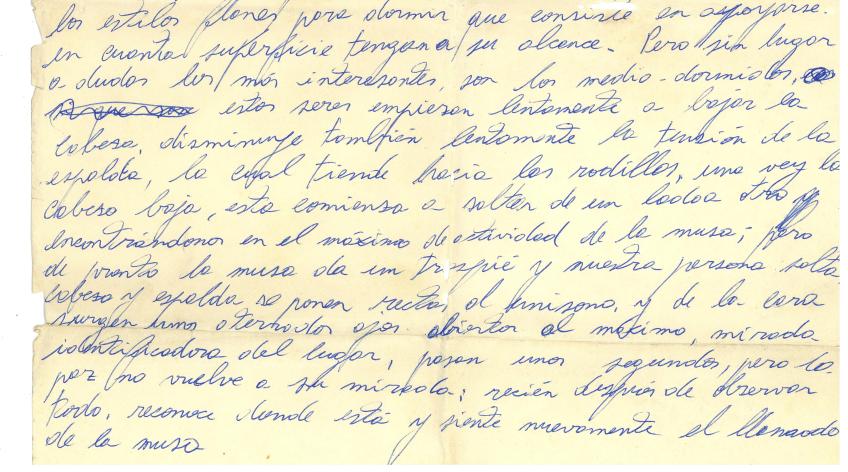 los estilos planos para dormir que consiste en apoyarse
en cuanta superficie tengan a su alcance. Pero sin lugar
a dudas los más interesantes, son los medio-dormidos,
estos seres empiesan lentamente a bajar la
cabesa, disminuye también lentamente la tensión de la
espalda, la cual tiende hacia las rodillas, una vez la
cabesa baja, esta comiensa a saltar de un lado a otro y
encontrándonos en el máximo de actividad de la musa; pero
de pronto la musa da un traspié y nuestra persona salta
cabesa y espalda se ponen rectas al unísono, y de la cara
surgen unos aterrados ojos abiertos al máximo, mirada
identificadora del lugar, pasan unos segundos, pero la
paz no vuelve a su mirada; recién después de observar
todo, reconoce donde está y siente nuevamente el llamado
de la musa